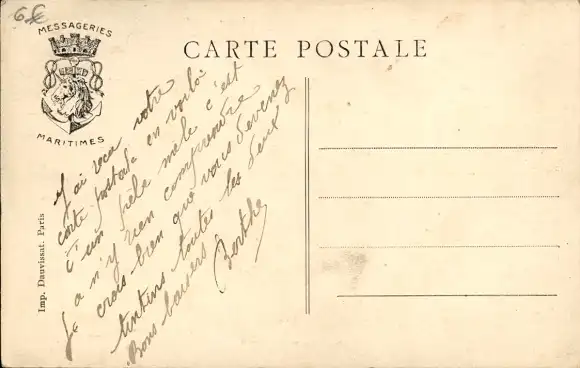 6 €
MESSAGERIES
MARITIMES
CARTE POSTALE
Imp. Dauvissat. Paris
J'ai reçu votre
carte postale en voilà
t'un pèle mèle c'est
a n'y rien comprendre
Je crois bien que vous devenez
tintins toutes les deux
Bons baisers
Berthe